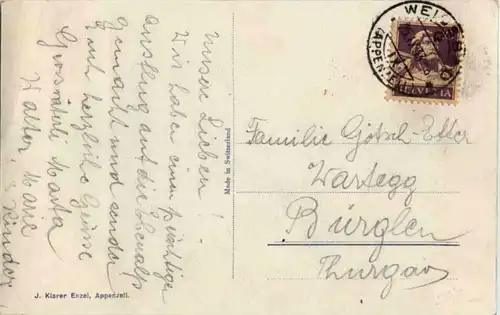 Unsere Lieben!
Wir haben einen prächtigen
Ausflug auf die Ebenalp
gemacht und senden
Euch herzliche Grüsse
Grossmüetti Marta
Walter, Marie
& Kinder,
J. Klarer Enzel, Appenzell.
Made in Switzerland
WEISSBAD
(APPENZELL)
HELVETIA
Familie Götsch-Etter
Wartegg
Bürglen
Thurgau